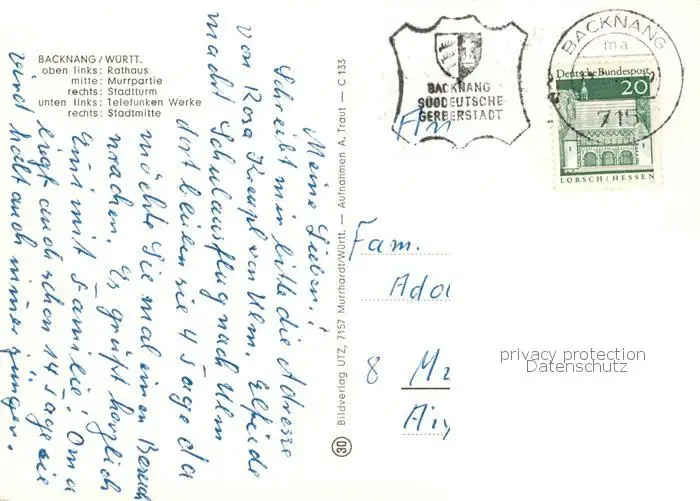 BACKNANG / WÜRTT.
oben links: Rathaus
mitte: Murrpartie
rechts: Stadtturm
unten links: Telefunken Werke
rechts: Stadtmitte
Meine Lieben!
Schreibt mir bitte die Adresse
von Rosa Krempl von Ulm. Elfriede
macht Schulausflug nach Ulm
dort bleiben sie 4 Tage da
möchte Sie mal einen Besuch
machen. Es grüßt herzlich
Emi mit Familie! Oma
liegt auch schon 14 Tage sie
wird halt auch nimmer jünger.
30 Bildverlag UTZ, 7157 Murrhardt/Württ. — Aufnahmen A. Traut — C 133
BACKNANG
SÜDDEUTSCHE
GERBERSTADT
BACKNANG
ma
715
Deutsche Bundespost
20
LORSCH/HESSEN
An
Fam.
8
privacy protection
Datenschutz